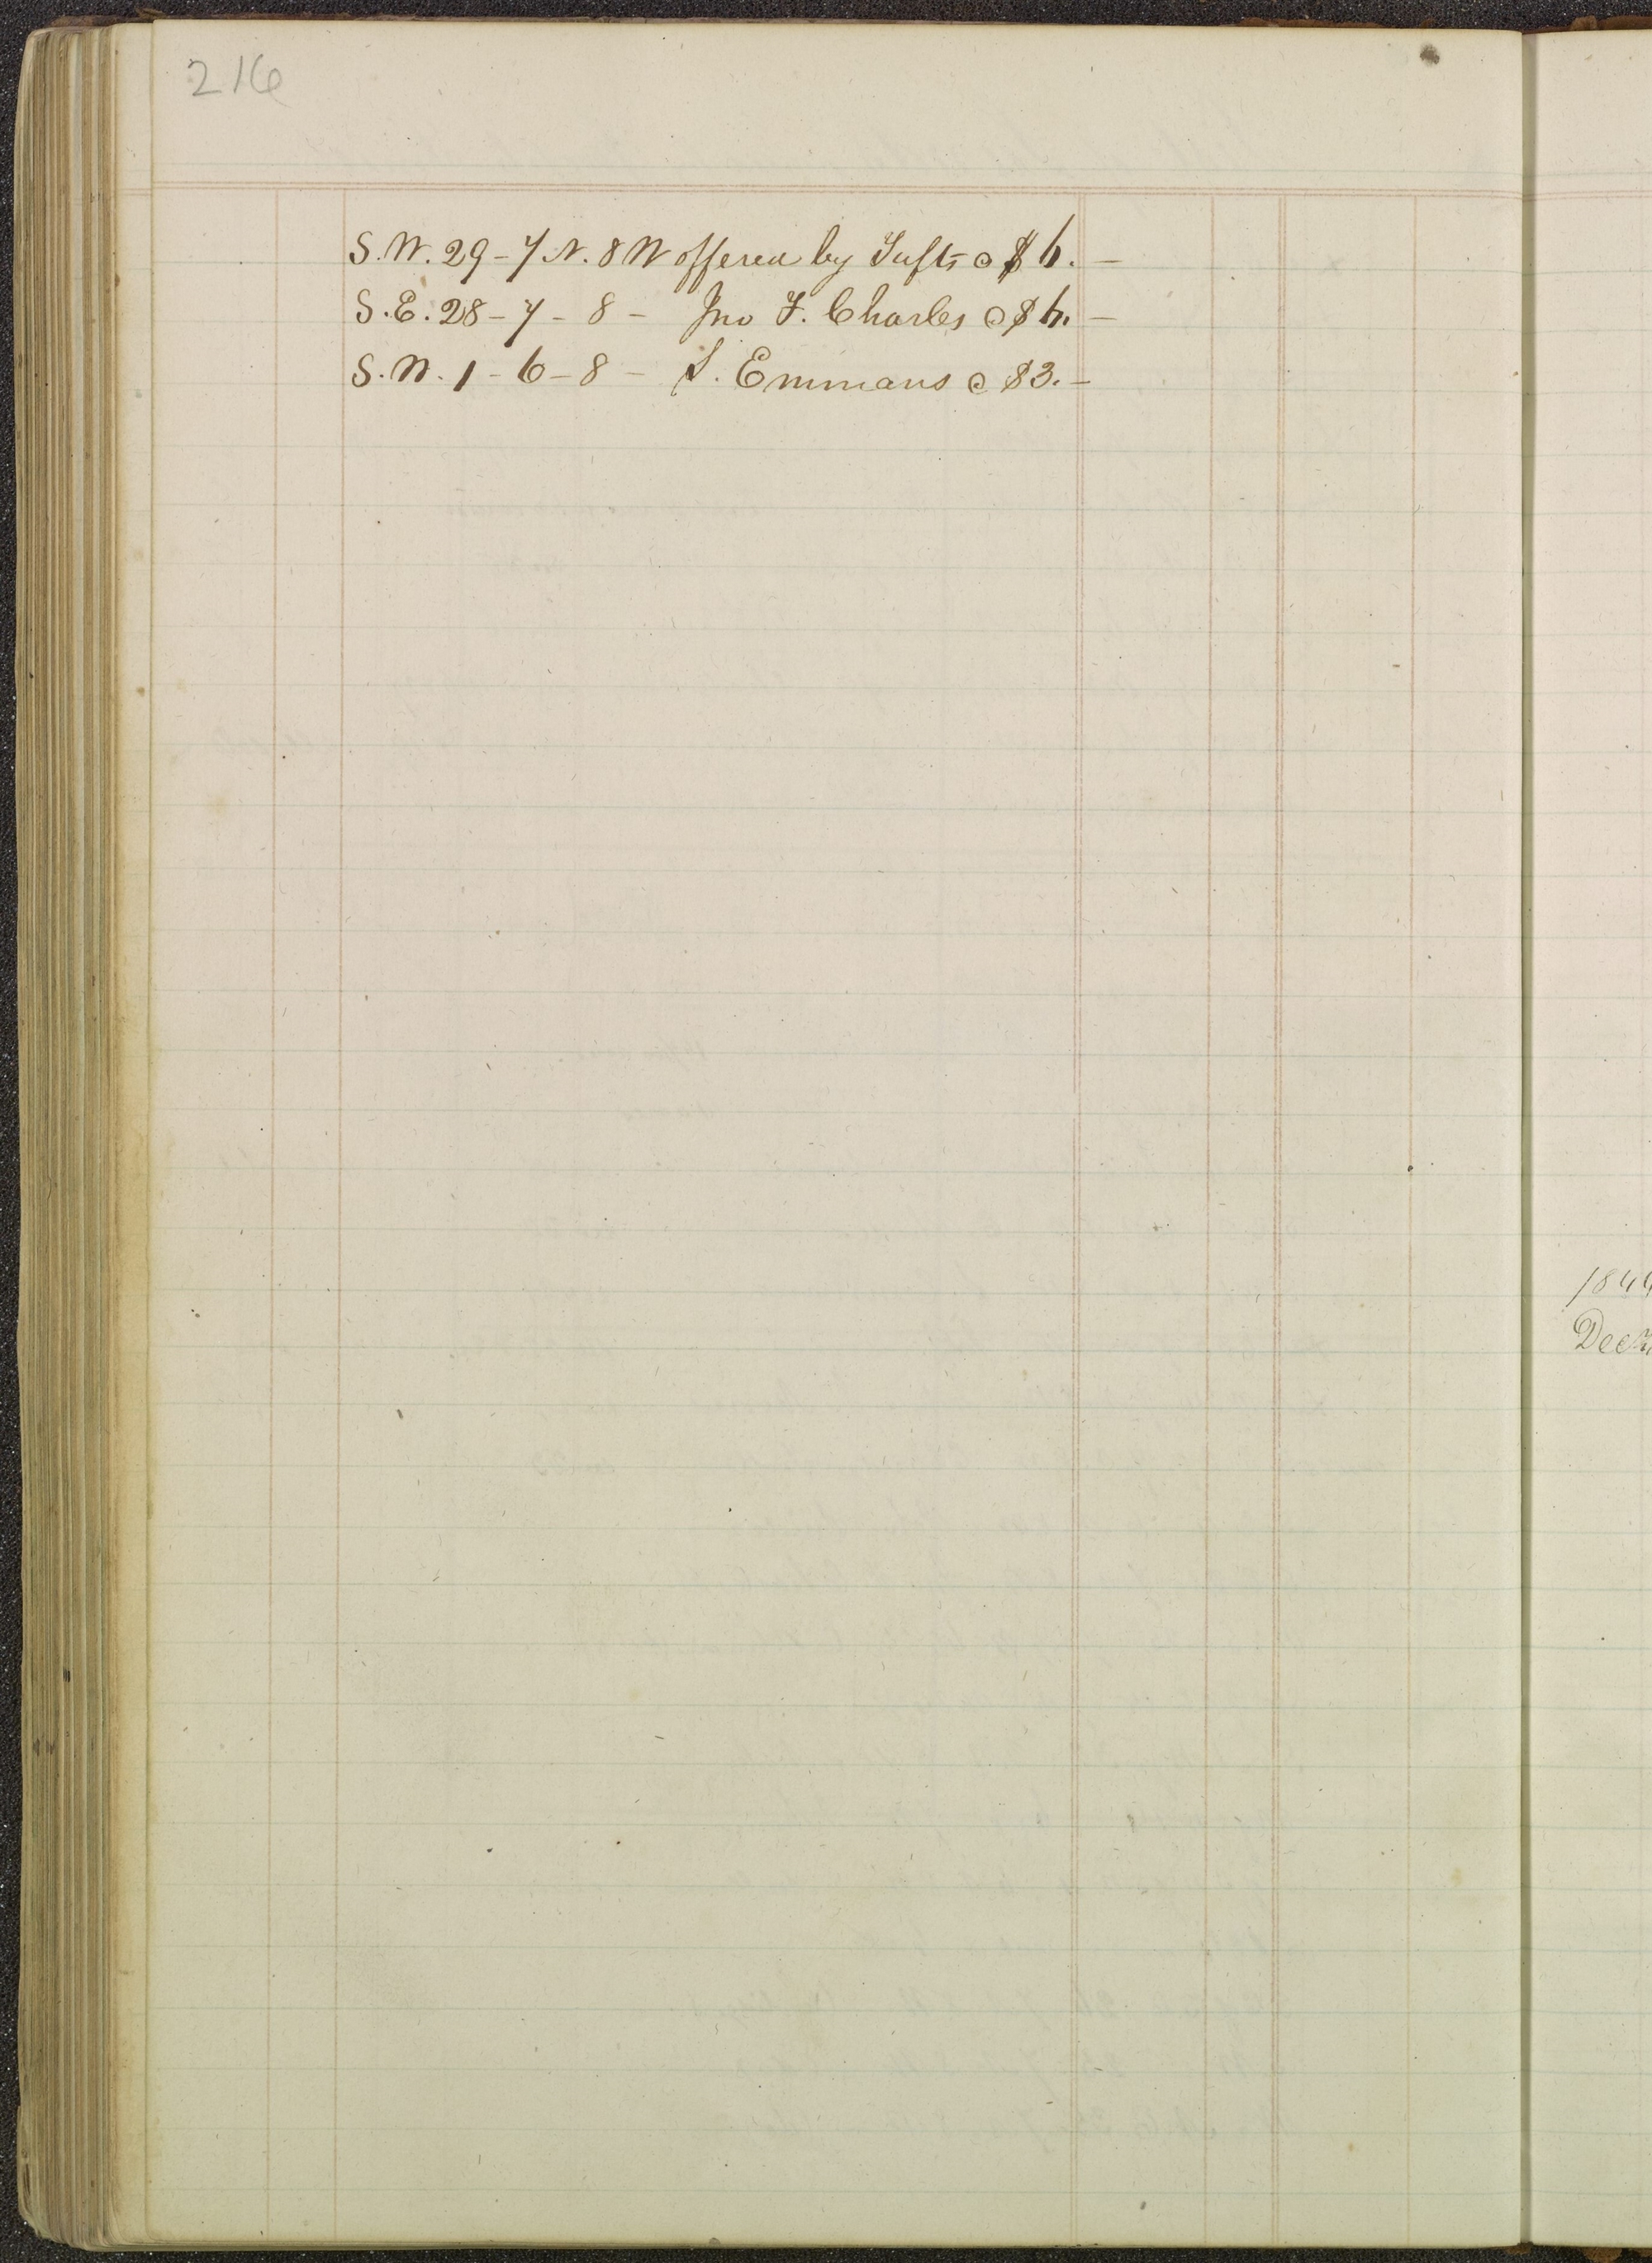 216
S.W. 29-7 N. 8 W offered by Tufts @ $ 6. —
S.E. 28-7-8 - Jno F. Charles @ $ 6. —
S.W. 1-6-8 - S. Emmans @ $3. —
1844
Dec